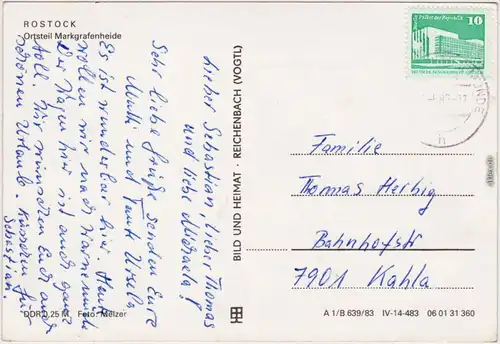 ROSTOCK
Ortsteil Markgrafenheide
Lieber Sebastian, lieber Thomas
und liebe Michaela!
Sehr liebe Grüße senden Eure
Mutti und Tante Ursela
Es ist wunderbar hier. Heute
wollen wir nach Warnemünde
Der Hafen hier ist auch ganz
toll. Wir wünschen Euch auch
schönen Urlaub. Küsschen für
Sebastian.
DDR 0,25 M Foto: Melzer
BILD UND HEIMAT · REICHENBACH (VOGTL)
Palast der Republik
10
DEUTSCHE DEMOKRATISCHE REPUBLIK
Familie
Thomas Herbig
Bahnhofstr
7901 Kahla
A 1/B 639/83 IV-14-483 06 01 31 360